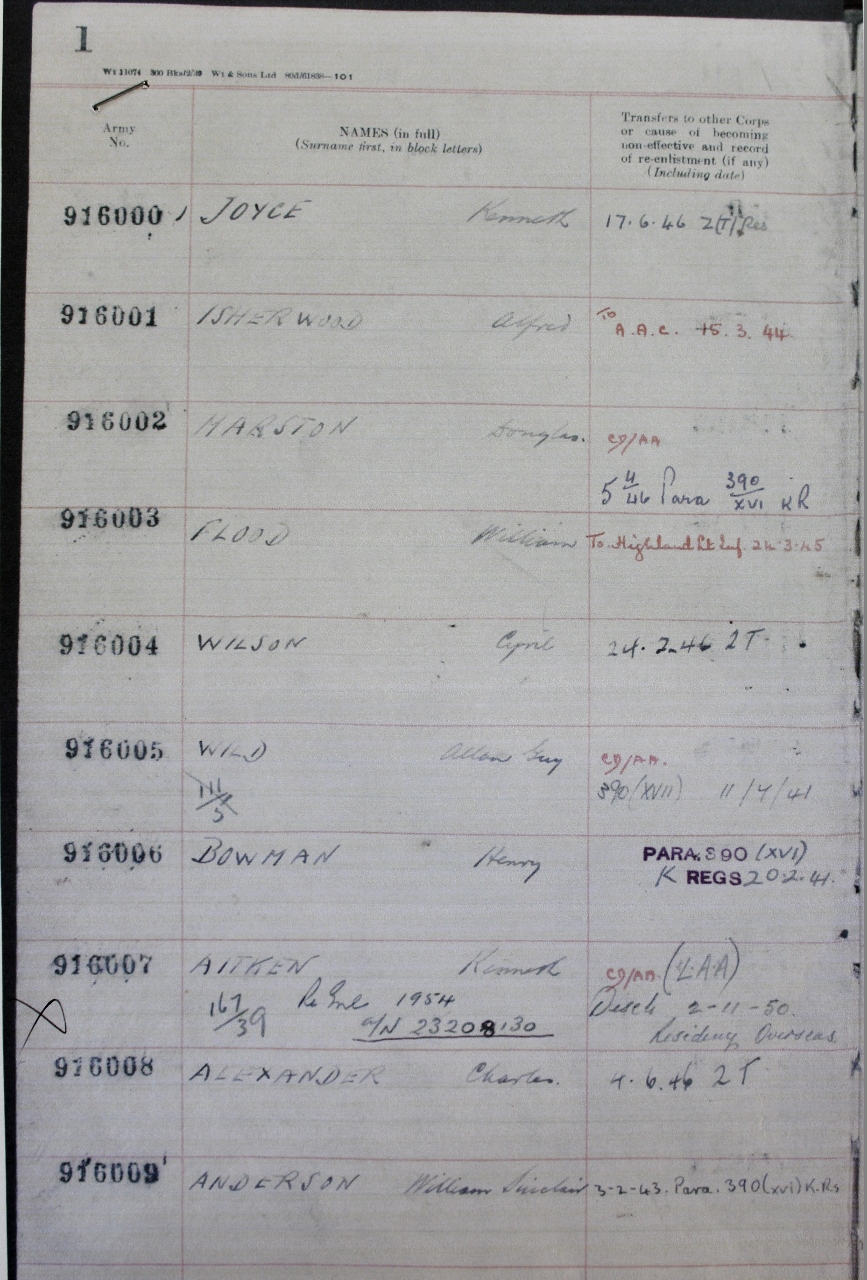 1
Wt 11074 300 Bks/2/39 Wt & Sons Ltd 80d/61838—101
Army
No.
NAMES (in full)
(Surname first, in block letters)
Transfers to other Corps
or cause of becoming
non-effective and record
of re-enlistment (if any)
(Including date)
916000 JOYCE Kenneth 17.6.46 Z(T) Res
916001 ISHERWOOD Alfred To
A.A.C. 15.3.44
916002 MARSTON Douglas. CD/AA
5 4/46 Para 390/XVI KR
916003 FLOOD William To Highland Lt Inf. 24.3.45
916004 WILSON Cyril 24.2.46 ZT
916005 WILD Allan Guy CD/AA.
111/5 390 (XVII) 11/7/41
916006 BOWMAN Henry PARA. 390 (XVI)
K REGS 20.2.41.
916007 AITKEN Kenneth CD/AA (LAA)
167/39 Re Enl 1954 2-11-50.
A/N 23208130 Residing Overseas.
916008 ALEXANDER Charles. 4.6.46 ZT
916009 ANDERSON William Sinclair 3-2-43. Para. 390 (XVI) K.Rs